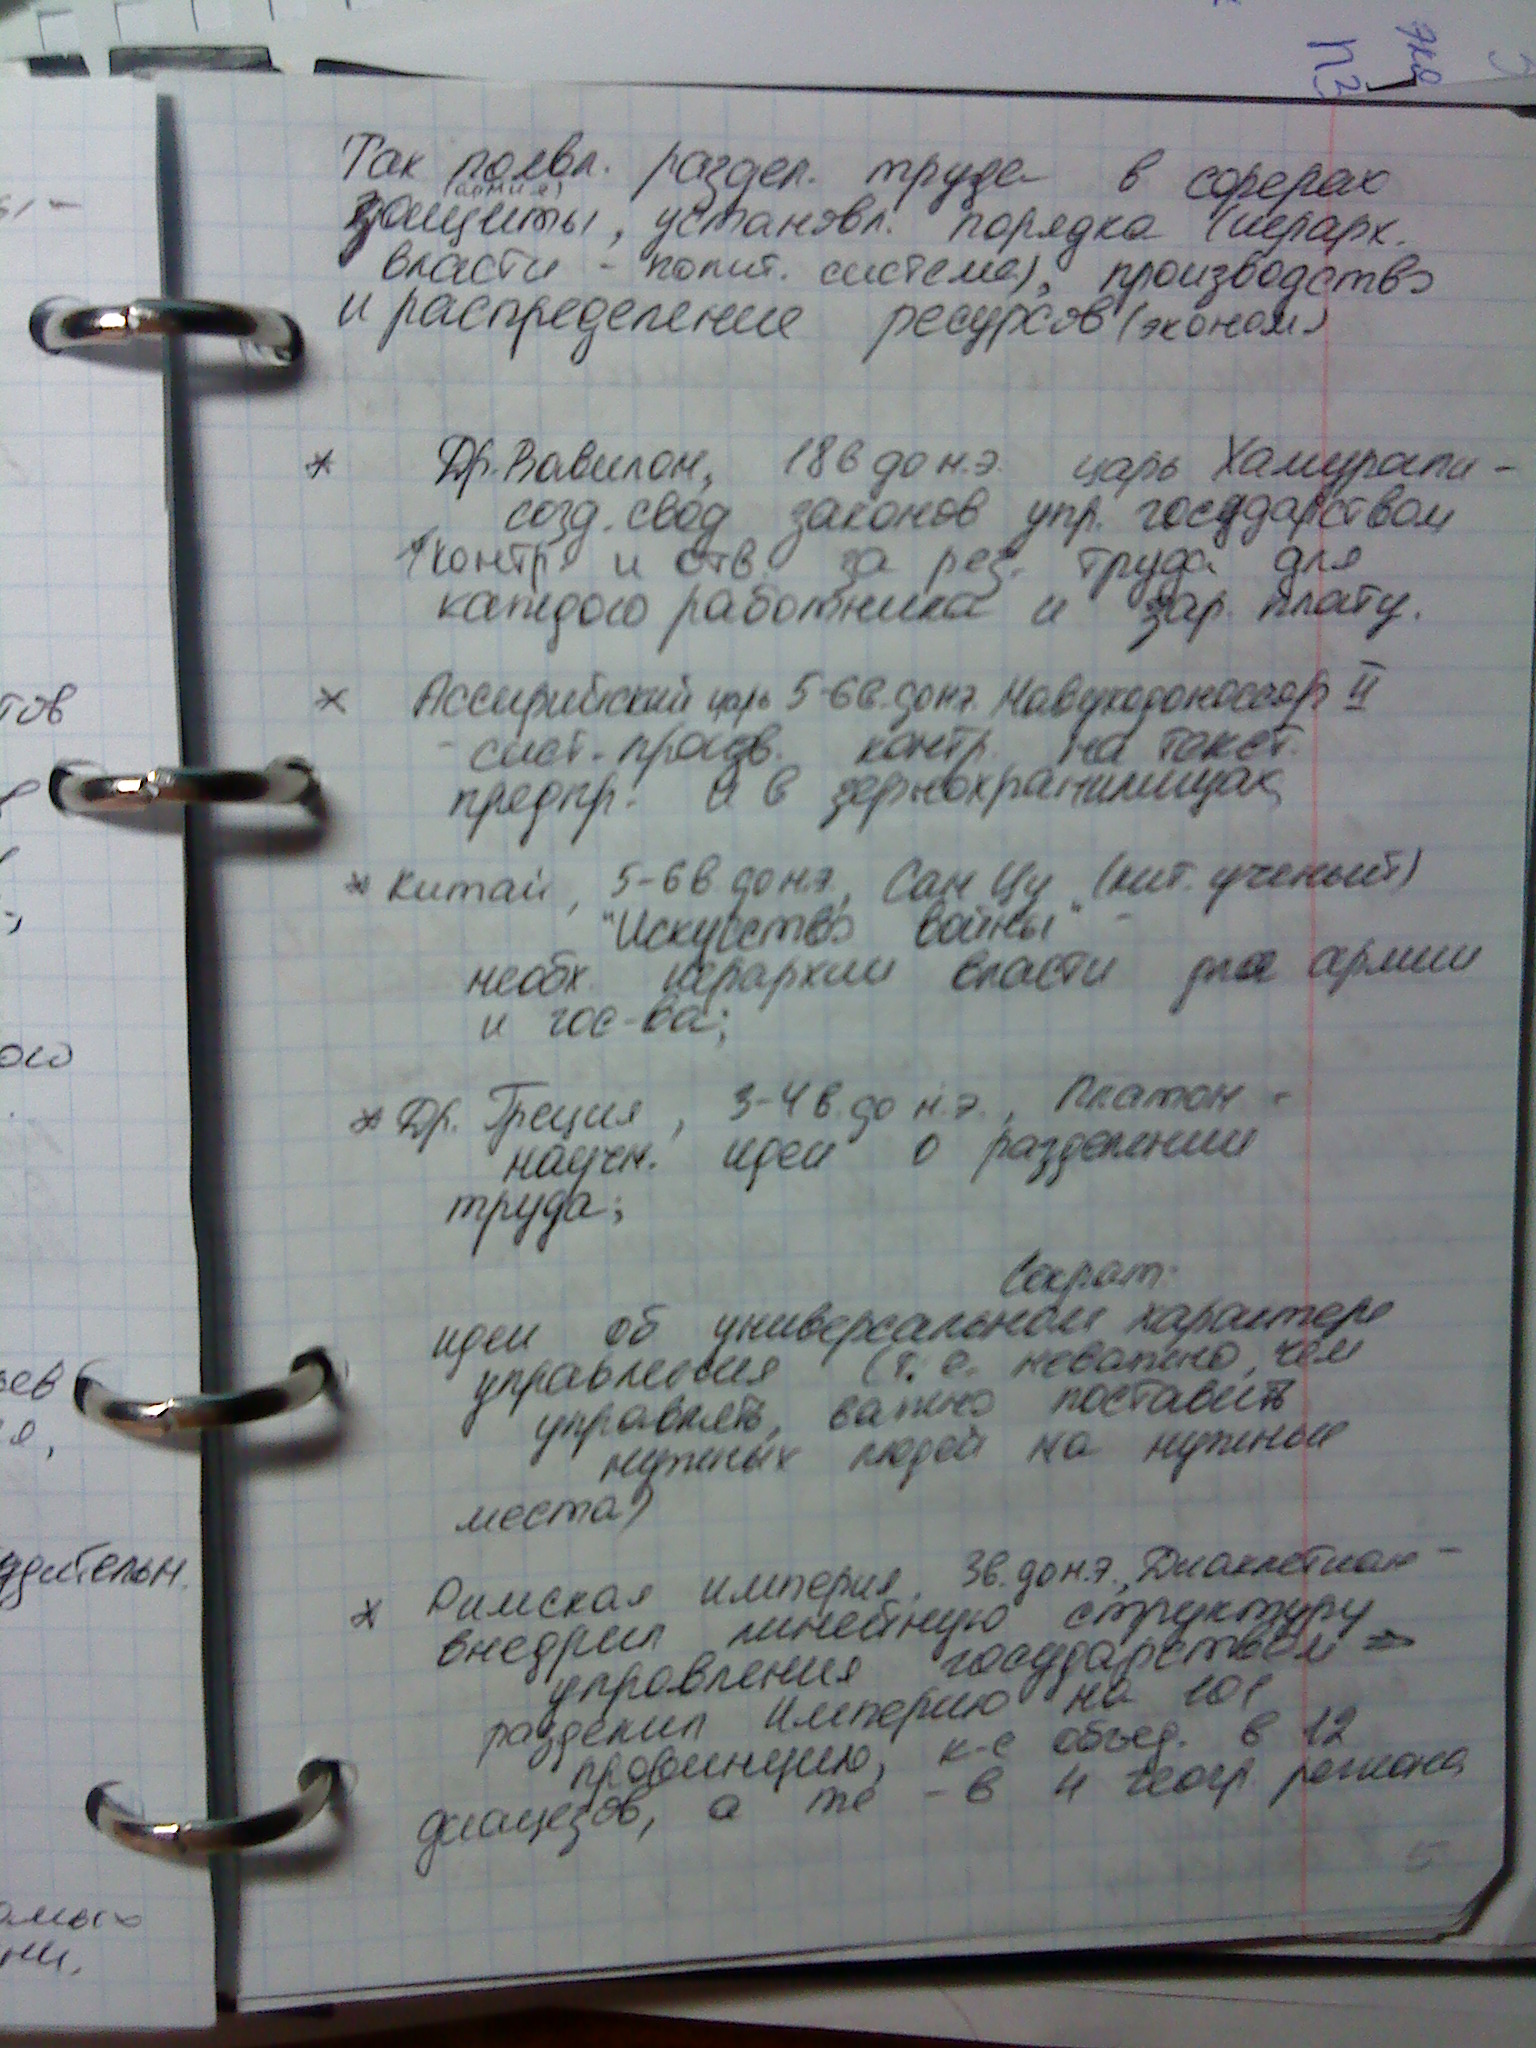 Так появл. раздел. труда в сферах
(армия)
защиты, установл. порядка (иерарх.
власти - полит. система), производство
и распределение ресурсов (эконом)
* Др. Вавилон, 18в до н.э. царь Хамурапи -
созд. свод законов упр. государством
↑контр и отв. за рез. труда для
каждого работника и зар. плату.
* Ассирийский царь 5-6в. до н.э. Навуходоноссор II
- сист. произв. контр. на текст.
предпр. и в зернохранилищах
* Китай, 5-6в. до н.э., Сан Цу (кит. ученый)
"Искусство войны" -
необх. иерархии власти для армии
и гос-ва;
* Др. Греция, 3-4 в. до н.э., Платон -
научн. идеи о разделении
труда;
Сократ:
идеи об универсальном характере
управления (т.е. неважно, чем
управлять, важно поставить
нужных людей на нужные
места)
* Римская империя, 3в. до н.э., Диаклетиан -
внедрил линейную структуру
управления государством =>
разделил Империю на 101
провинцию, к-е объед. в 12
диацезов, а те - в 4 геогр. региона
5
тов
ого
дительн.